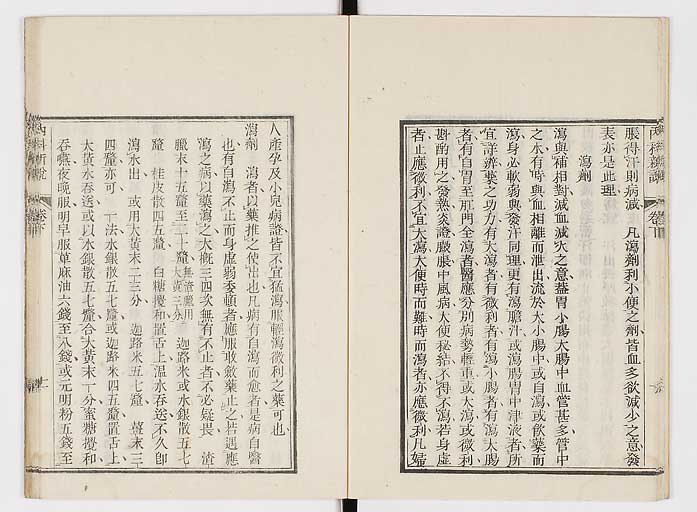 內科新說 卷下
脹得汗則病減　凡瀉劑利小便之劑皆血多欲減少之意發
表亦是此理
瀉劑
瀉與補相對減血減火之意蓋胃小腸大腸中血管甚多管中
之水有時與血相離而泄出流於大小腸中或自瀉或飲藥而
瀉身必軟弱與發汗同理更有瀉膽汁或瀉腸胃中津液者所
宜詳辨藥之功力有大瀉者有微利者有瀉小腸者有瀉大腸
者有自胃至肛門全瀉者醫應分別病勢輕重或大瀉或微利
斟酌用之發熱炎證嚴服中風病大便秘結不得不瀉若身虛
者止應微利不宜大瀉大便時而難時而瀉者亦應微利凡婦
人產孕及小兒病證皆不宜猛瀉服輕瀉微利之藥可也
瀉劑　瀉者以藥推之使出也凡病有自瀉而愈者是病自醫
也有自瀉不止而身虛弱委頓者應服收斂藥止之若遇應
瀉之病以藥瀉之大概三四次無有不止者不必疑畏　渣
臘末十五釐至二十釐無渣臘用大黃三分　迦路米或水銀散五七
釐　桂皮散四五釐　白糖攪和置舌上溫水吞送不久卽
瀉水出　或用大黃末二三分　迦路米五七釐　薑末三
四釐亦可　一法水銀散五七釐或迦路米四五釐置舌上
大黃水吞送或以水銀散五七釐合大黃末一分蜜糖攪和
吞嚥夜晚服明早服萆麻油六錢至八錢或元明粉五錢至
內科新說 卷下